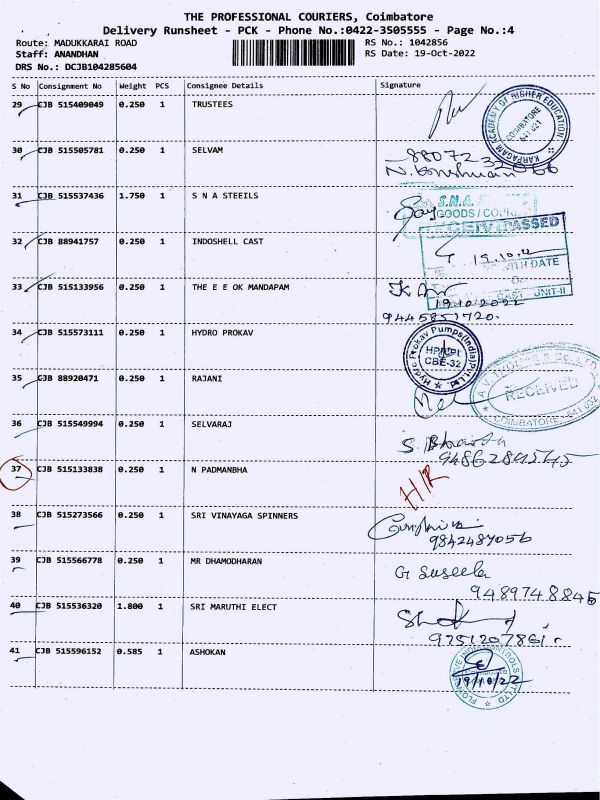 THE PROFESSIONAL COURIERS, Coimbatore
Delivery Runsheet - PCK - Phone No.:0422-3505555 - Page No.:4
Route: MADUKKARAI ROAD RS No.: 1042856
Staff: ANANDHAN RS Date: 19-Oct-2022
DRS No.: DCJB104285604
S No Consignment No Weight PCS Consignee Details Signature
29 CJB 515409049 0.250 1 TRUSTEES
KARPAGAM ACADEMY OF HIGHER EDUCATION COIMBATORE 641 021
30 CJB 515505781 0.250 1 SELVAM
31 CJB 515537436 1.750 1 S N A STEEILS
S.N.A.
GOODS / COUR
32 CJB 88941757 0.250 1 INDOSHELL CAST
PASSED
19.10.22
WITH DATE
UNIT-II
33 CJB 515133956 0.250 1 THE E E OK MANDAPAM
19.10.2022
9445851720.
34 CJB 515573111 0.250 1 HYDRO PROKAV
Hydro Prokav Pumps(India)Pvt.Ltd
CBE-32
35 CJB 88920471 0.250 1 RAJANI
RECEIVED
COIMBATORE - 641 032
36 CJB 515549994 0.250 1 SELVARAJ
37 CJB 515133838 0.250 1 N PADMANBHA
H/R
38 CJB 515273566 0.250 1 SRI VINAYAGA SPINNERS
9842487056
39 CJB 515566778 0.250 1 MR DHAMODHARAN
G Suseela
9489748845
40 CJB 515536320 1.800 1 SRI MARUTHI ELECT
9751207861.
41 CJB 515596152 0.585 1 ASHOKAN
19/10/22